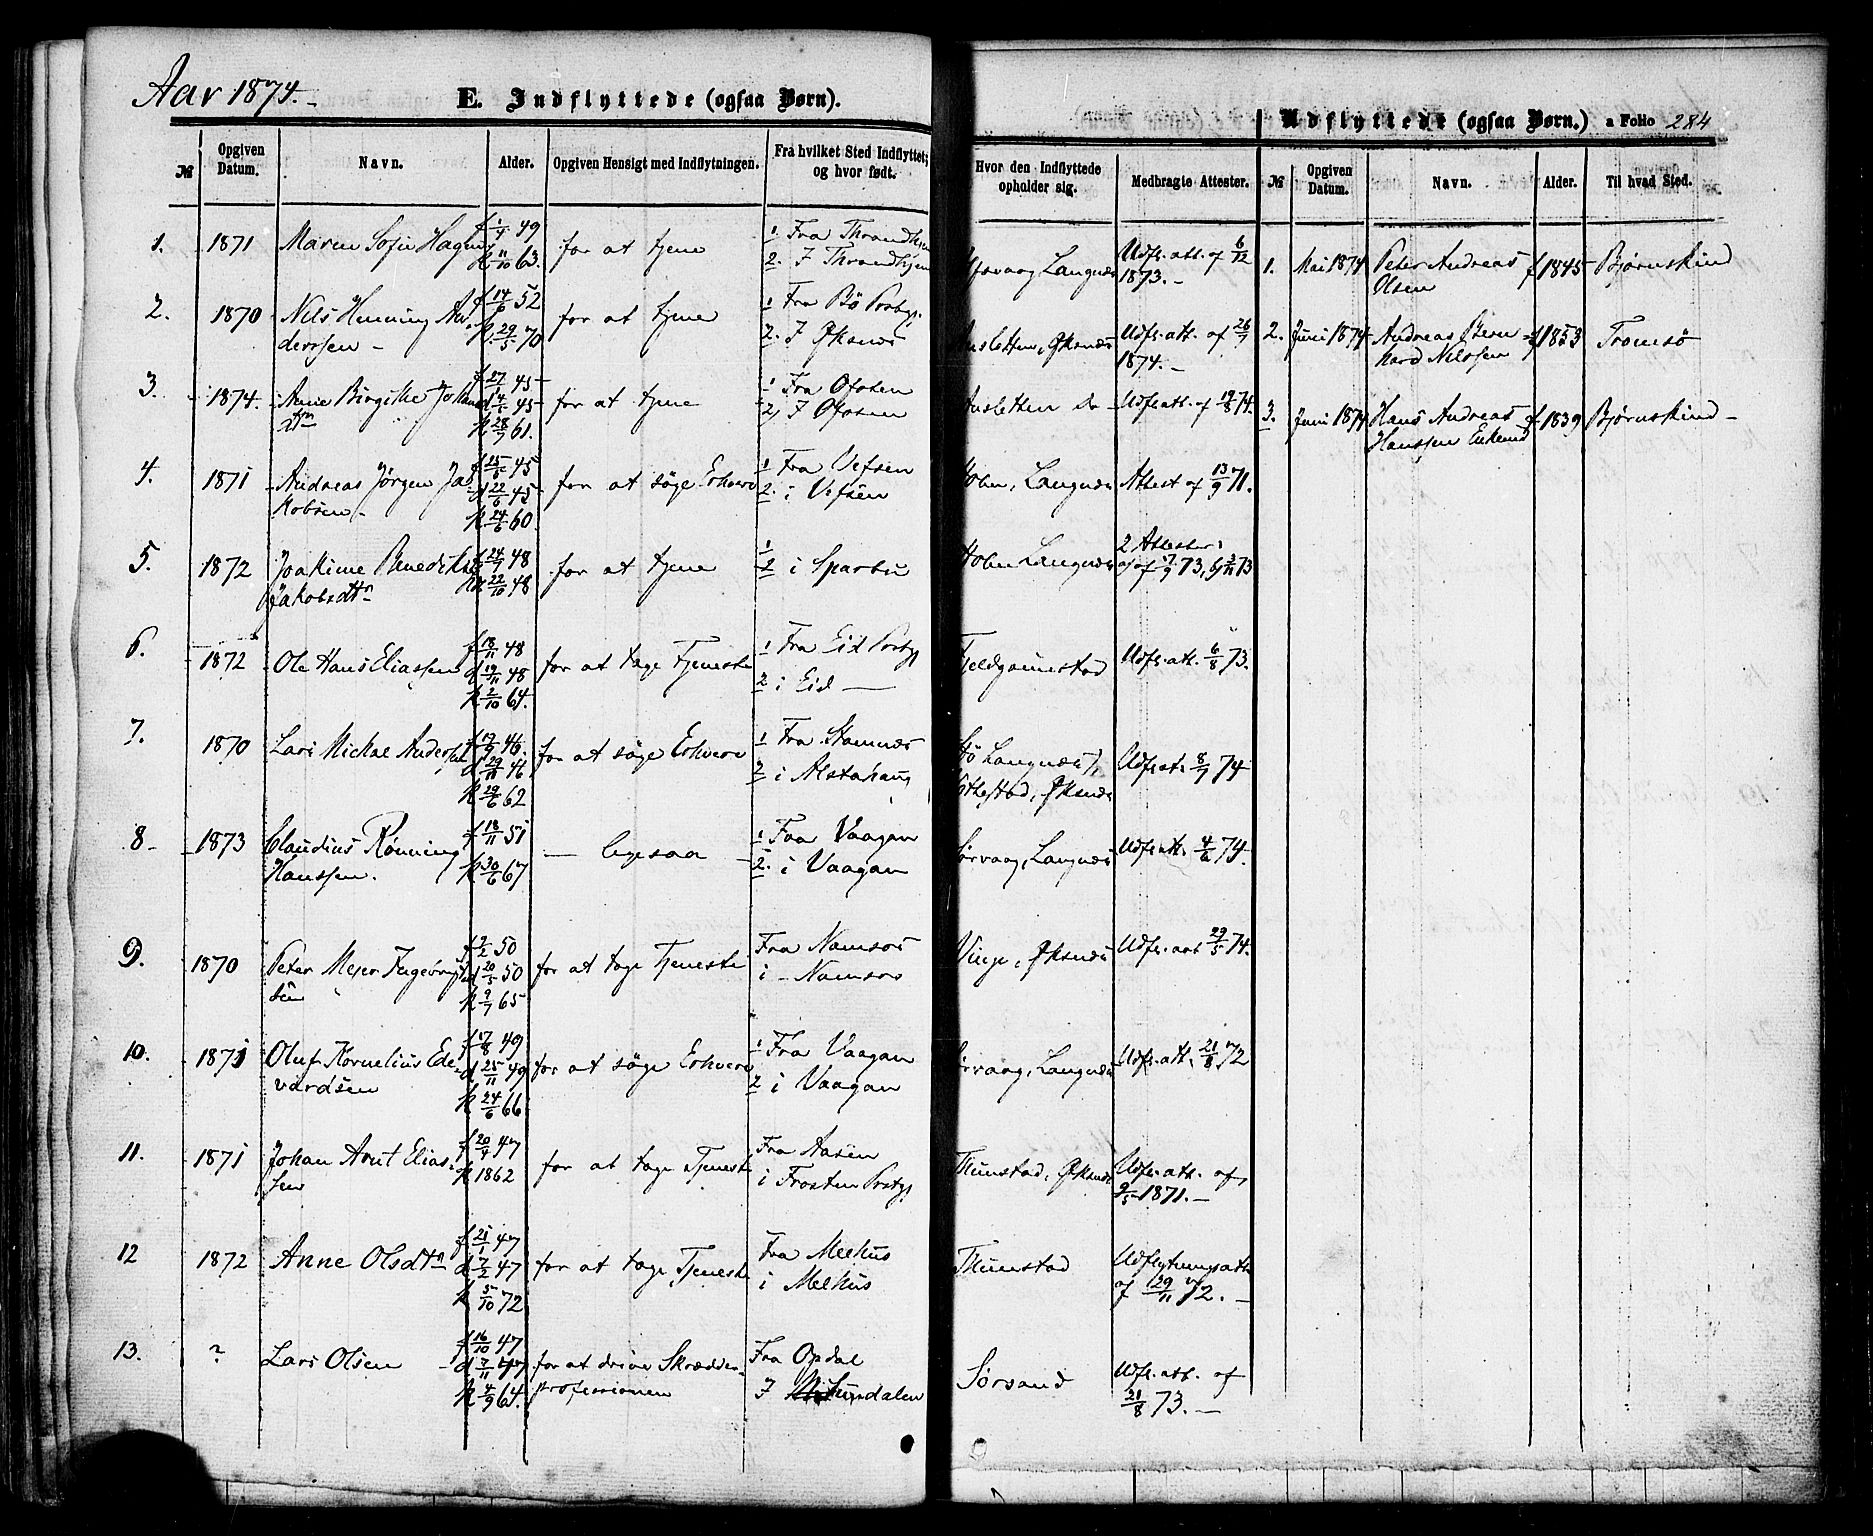 Aar 1874.-
E. Indflyttede (ogsaa Børn).
Udflyttede (ogsaa Børn.)
a Folio 284
№
Opgiven Datum.
Navn.
Alder.
Opgiven Hensigt med Indflytningen.
Fra hvilket Sted Indflyttet, og hvor født.
Hvor den Indflyttede opholder sig.
Medbragte Attester.
№
Opgiven Datum.
Navn.
Alder.
Til hvad Sted.
1. 1871 Maren Sofie Hagen f 1/4 49 K 11/10 63. for at tjene 1 Fra Throndhjem 2. I Throndhjem Langnæs Udfl. att. af 6/12 1873.-
2. 1870 Nils Henning Anderssen - f 14/6 52 K. 29/5 70 for at tjene 1 Fra Bö Prstgj. 2. I Øksnæs Øksnæs Udfl. att. af 26/7 1874.-
3. 1874. Anne Birgitte f 27/1 45 K 28/9 61. for at tjene 1 Fra Ofoten 2) I Ofoten Udfl. att. af 19/8 74.
4. 1871 Andreas Jørgen Jakobsen - f 15/6 45 d 22/6 45 K 24/6 60. for at söge Erhverv 1 Fra Vefsen 2. i Vefsen Langnæs Attest af 13/9 71.
5. 1872 Joakime Benedikte Jakobsdtr f 24/7 48 22/10 48 for at tjene 1 2 i Sparbu Langnæs 2 Attester: af 17/9 73, og 2/11 73
6. 1872 Ole Hans Eliassen f 18/11 48 d 19/11 48 K 2/10 64. for at tage Tjeneste 1 Fra Eid Prstgj 2 i Eid — Udfl. att. 6/8 73.
7. 1870 Lars Mickal Anderssen f 19/9 46. d 29/11 46 K 29/6 62 for at söge Erhverv 1 Fra Stamnæs 2 i Alstahaug Stö Langnæs, Øksnæs Udfl. att. 8/7 74
8- 1873 Claudius Rønning Hanssen. f 18/11 51 K 30/6 67 — ligesaa — 1 Fra Vaagan 2. i Vaagan Sørvaag, Langnæs Udfl. att. 4/6 74.
9. 1870 Peter Mejer Ingebrigtsen f 9/2 50 d 20/5 50 K 9/7 65 for at tage Tjeneste Fra Namsos i - Namsos Vinje, Øksnæs Udfl. att 29/5 74.
10. 1871 Oluf Kornelius Edevardsen f 17/8 49 d 25/11 49 K 24/6 66 for at söge Erhverv 1 Fra Vaagan 2 i Vaagan Langnæs Udfl. att. 21/8 72
11. 1871 Johan Arnt Eliassen f 20/4 47 K 1862 for at tage Tjeneste Fra Aasen i Frosten Prstgj Tunstad, Øksnæs Udfl. att. af 9/5 1871.-
12 1872 Anne Olsdtr f 21/1 47 d 7/2 47 K 5/10 72 for at tage Tjeneste Fra Melhus i Melhus Tunstad Udflytningsatt. af 29/11 72.-
13. ? Lars Olsen - f 16/10 47 d 7/11 47 K 4/9 64. for at drive Skrædderprofessionen Fra Opdal I Sundalen Sørsand Udfl. att. af 21/8 73.-
1. Mai 1874 Peter Andreas Olsen f 1845 Bjørnskind
2. Juni 1874 Andreas Bernhard Nilssen f 1853 Tromsö
3. Juni 1874 Hans Andreas Hanssen f. 1839 Bjørnskind -